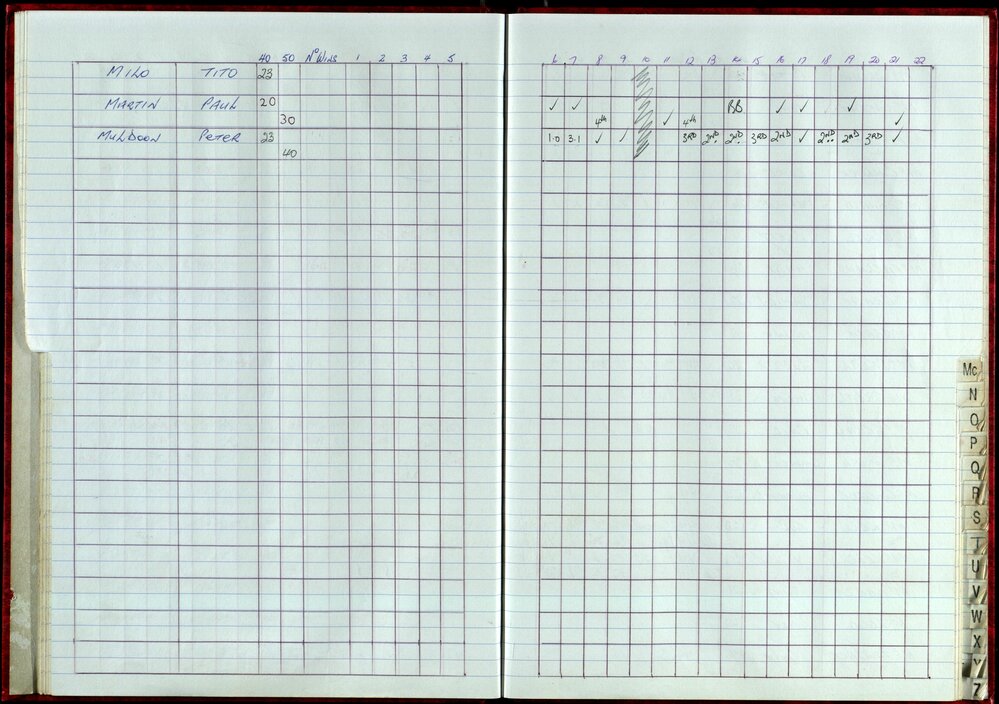 40 50 Nº WINS 1 2 3 4 5 6 7 8 9 10 11 12 13 14 15 16 17 18 19 20 21 22
MILO TITO 23
MARTIN PAUL 20 ✓ ✓ BB ✓ ✓ ✓
30 4th ✓ 4th ✓
MULDOON PETER 23 1.0 3.1 ✓ ✓ 3RD 2ND 2ND 3RD 2ND ✓ 2ND 2ND 3RD ✓
40
Mc
N
O
P
Q
R
S
T
U
V
W
X
Y
Z